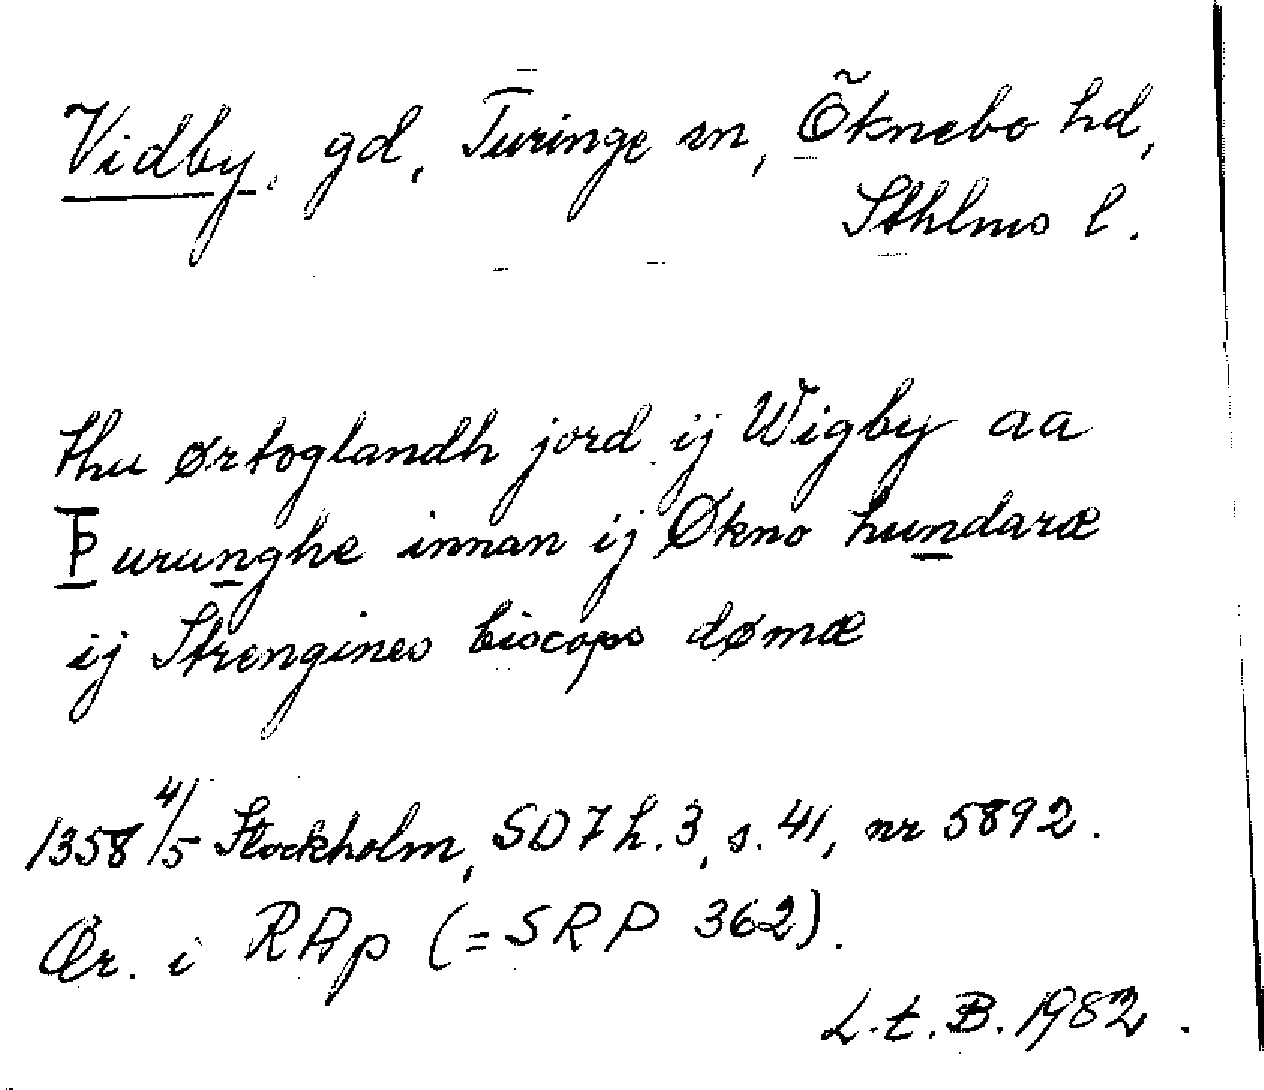 Vidby, gd, Turinge sn, Öknebo hd,
Sthlms l.
thu ørtoglandh jord ij Wigby aa
Þurunghe innan ij Økno hundaræ
ij Strengines biscops dømæ
1358 4/5 Stockholm, SD 7 h. 3, s. 41, nr 5892.
Or. i RAp (=SRP 362).
L.t. B. 1982.